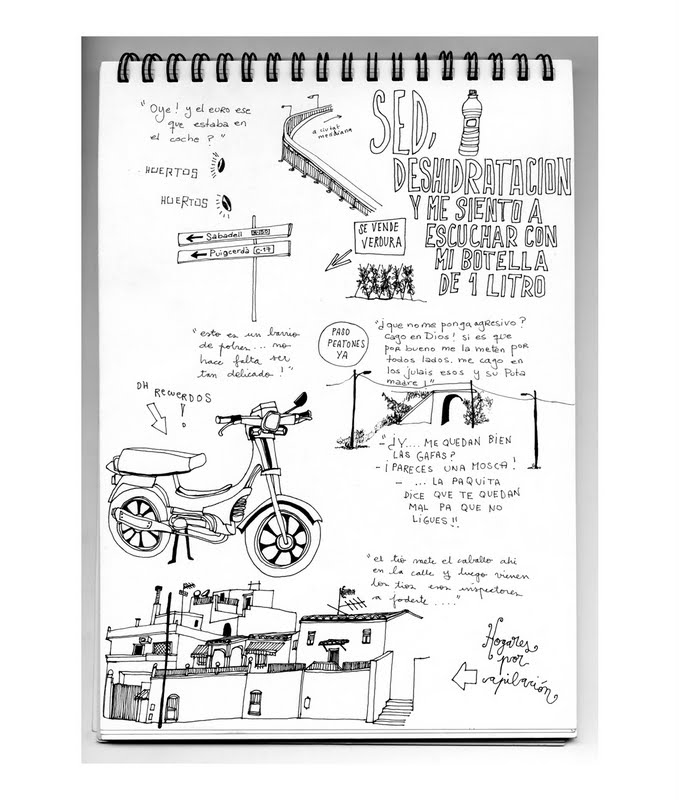 "Oye! y el euro ese
que estaba en
el coche?"
HUERTOS
HUERTOS
a ciutat
meridiana
SED,
DESHIDRATACION
Y ME SIENTO A
ESCUCHAR CON
MI BOTELLA
DE 1 LITRO
Sabadell
Puigcerdà C-17
SE VENDE
VERDURA
"esto es un barrio
de pobres... no
hace falta ser
tan delicado!"
PASO
PEATONES
YA
"¿que no me ponga agresivo?
Cago en Dios! si es que
por bueno me la meten por
todos lados, me cago en
los julais esos y su Puta
madre!"
OH RECUERDOS
!
-"¿Y.... ME QUEDAN BIEN
LAS GAFAS?
-¡PARECES UNA MOSCA!
- ... LA PAQUITA
DICE QUE TE QUEDAN
MAL PA QUE NO
LIGUES!!
"el tio mete el caballo ahi
en la calle y luego vienen
los tios esos inspectores
a joderte ...."
Hogares
por
capilación